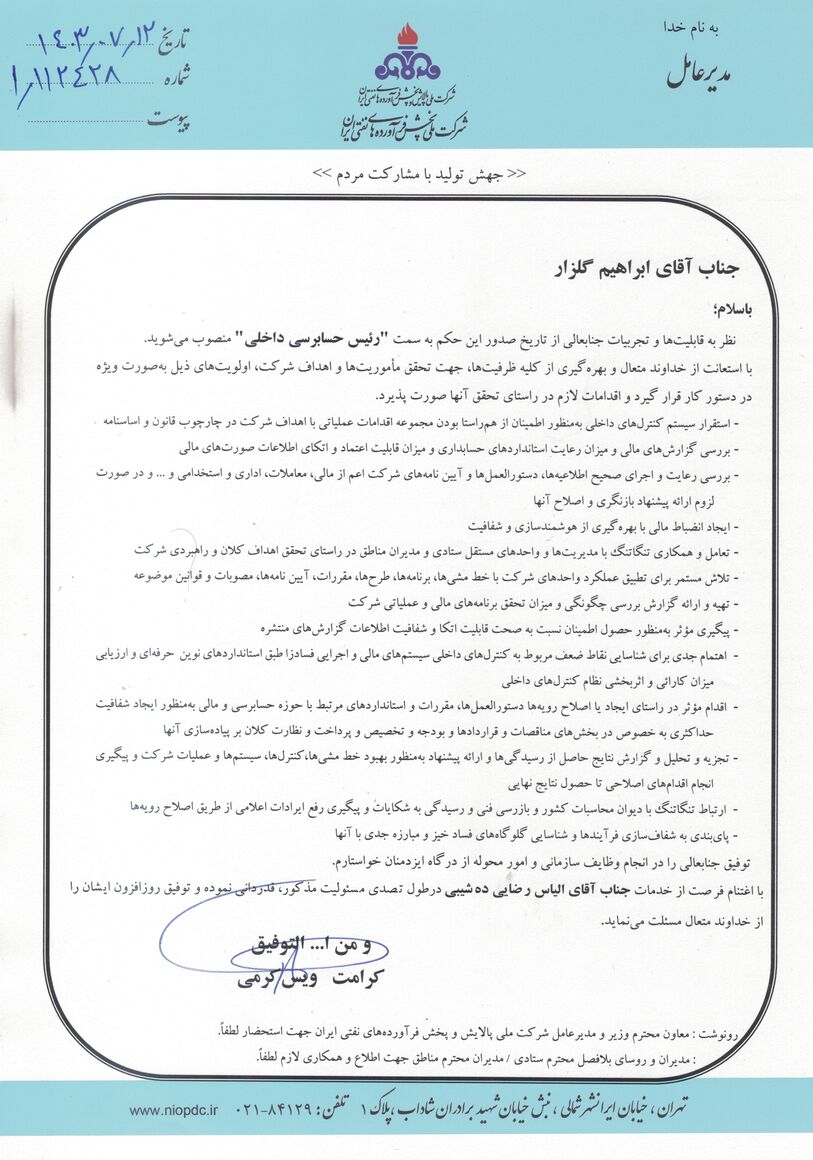 به نام خدا
مدیرعامل
شرکت ملی پالایش و پخش فرآورده‌های نفتی ایران
شرکت ملی پخش فرآورده‌های نفتی ایران
تاریخ ۱۴۰۳,۰۷,۱۲
شماره ۱٫۱۱۲۴۲۸
پیوست
<< جهش تولید با مشارکت مردم >>
جناب آقای ابراهیم گلزار
باسلام؛
نظر به قابلیت‌ها و تجربیات جنابعالی از تاریخ صدور این حکم به سمت "رئیس حسابرسی داخلی" منصوب می‌شوید.
با استعانت از خداوند متعال و بهره‌گیری از کلیه ظرفیت‌ها، جهت تحقق مأموریت‌ها و اهداف شرکت، اولویت‌های ذیل به‌صورت ویژه
در دستور کار قرار گیرد و اقدامات لازم در راستای تحقق آنها صورت پذیرد.
- استقرار سیستم کنترل‌های داخلی به‌منظور اطمینان از هم‌راستا بودن مجموعه اقدامات عملیاتی با اهداف شرکت در چارچوب قانون و اساسنامه
- بررسی گزارش‌های مالی و میزان رعایت استانداردهای حسابداری و میزان قابلیت اعتماد و اتکای اطلاعات صورت‌های مالی
- بررسی رعایت و اجرای صحیح اطلاعیه‌ها، دستورالعمل‌ها و آیین نامه‌های شرکت اعم از مالی، معاملات، اداری و استخدامی و ... و در صورت
لزوم ارائه پیشنهاد بازنگری و اصلاح آنها
- ایجاد انضباط مالی با بهره‌گیری از هوشمندسازی و شفافیت
- تعامل و همکاری تنگاتنگ با مدیریت‌ها و واحدهای مستقل ستادی و مدیران مناطق در راستای تحقق اهداف کلان و راهبردی شرکت
- تلاش مستمر برای تطبیق عملکرد واحدهای شرکت با خط مشی‌ها، برنامه‌ها، طرح‌ها، مقررات، آیین نامه‌ها، مصوبات و قوانین موضوعه
- تهیه و ارائه گزارش بررسی چگونگی و میزان تحقق برنامه‌های مالی و عملیاتی شرکت
- پیگیری مؤثر به‌منظور حصول اطمینان نسبت به صحت قابلیت اتکا و شفافیت اطلاعات گزارش‌های منتشره
- اهتمام جدی برای شناسایی نقاط ضعف مربوط به کنترل‌های داخلی سیستم‌های مالی و اجرایی فسادزا طبق استانداردهای نوین حرفه‌ای و ارزیابی
میزان کارائی و اثربخشی نظام کنترل‌های داخلی
- اقدام مؤثر در راستای ایجاد یا اصلاح رویه‌ها دستورالعمل‌ها، مقررات و استانداردهای مرتبط با حوزه حسابرسی و مالی به‌منظور ایجاد شفافیت
حداکثری به خصوص در بخش‌های مناقصات و قراردادها و بودجه و تخصیص و پرداخت و نظارت کلان بر پیاده‌سازی آنها
- تجزیه و تحلیل و گزارش نتایج حاصل از رسیدگی‌ها و ارائه پیشنهاد به‌منظور بهبود خط مشی‌ها،کنترل‌ها، سیستم‌ها و عملیات شرکت و پیگیری
انجام اقدام‌های اصلاحی تا حصول نتایج نهایی
- ارتباط تنگاتنگ با دیوان محاسبات کشور و بازرسی فنی و رسیدگی به شکایات و پیگیری رفع ایرادات اعلامی از طریق اصلاح رویه‌ها
- پای‌بندی به شفاف‌سازی فرآیندها و شناسایی گلوگاه‌های فساد خیز و مبارزه جدی با آنها
توفیق جنابعالی را در انجام وظایف سازمانی و امور محوله از درگاه ایزدمنان خواستارم.
با اغتنام فرصت از خدمات جناب آقای الیاس رضایی ده شیبی درطول تصدی مسئولیت مذکور، قدردانی نموده و توفیق روزافزون ایشان را
از خداوند متعال مسئلت می‌نماید.
و من ا... التوفیق
کرامت ویس کرمی
رونوشت : معاون محترم وزیر و مدیرعامل شرکت ملی پالایش و پخش فرآورده‌های نفتی ایران جهت استحضار لطفاً.
: مدیران و روسای بلافصل محترم ستادی / مدیران محترم مناطق جهت اطلاع و همکاری لازم لطفاً.
تهران ، خیابان ایرانشهر شمالی ، نبش خیابان شهید برادران شاداب ، پلاک ۱ تلفن : ۸۴۱۲۹-۰۲۱ www.niopdc.ir